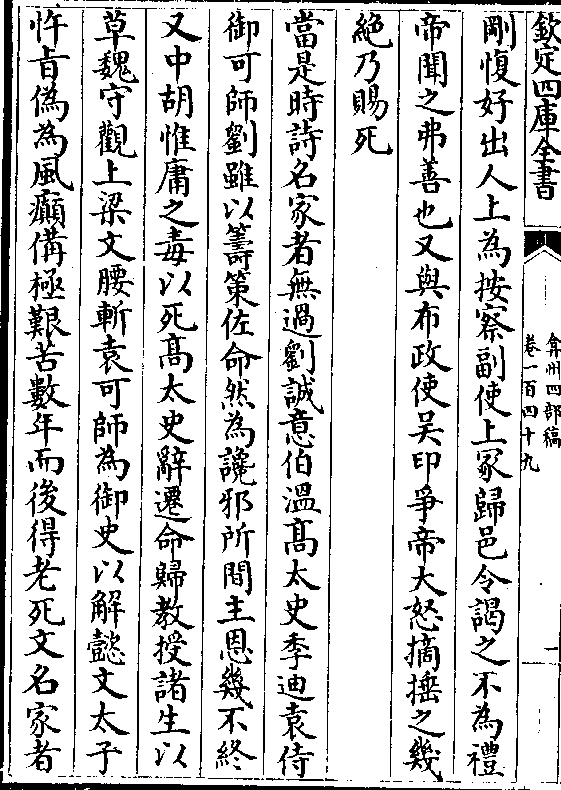 欽定四庫全書
弇州四部稿
卷一百四十九
一
剛愎好出人上為按察副使上冢歸邑令謁之不為禮
帝聞之弗善也又與布政使吴印爭帝大怒摘捶之幾
絶乃賜死
當是時詩名家者無過劉誠意伯溫髙太史季迪袁侍
御可師劉雖以籌策佐命然為讒邪所間主恩幾不終
又中胡惟庸之毒以死髙太史辭遷命歸教授諸生以
草魏守觀上梁文腰斬袁可師為御史以解懿文太子
忤旨偽為風癲備極艱苦數年而後得老死文名家者